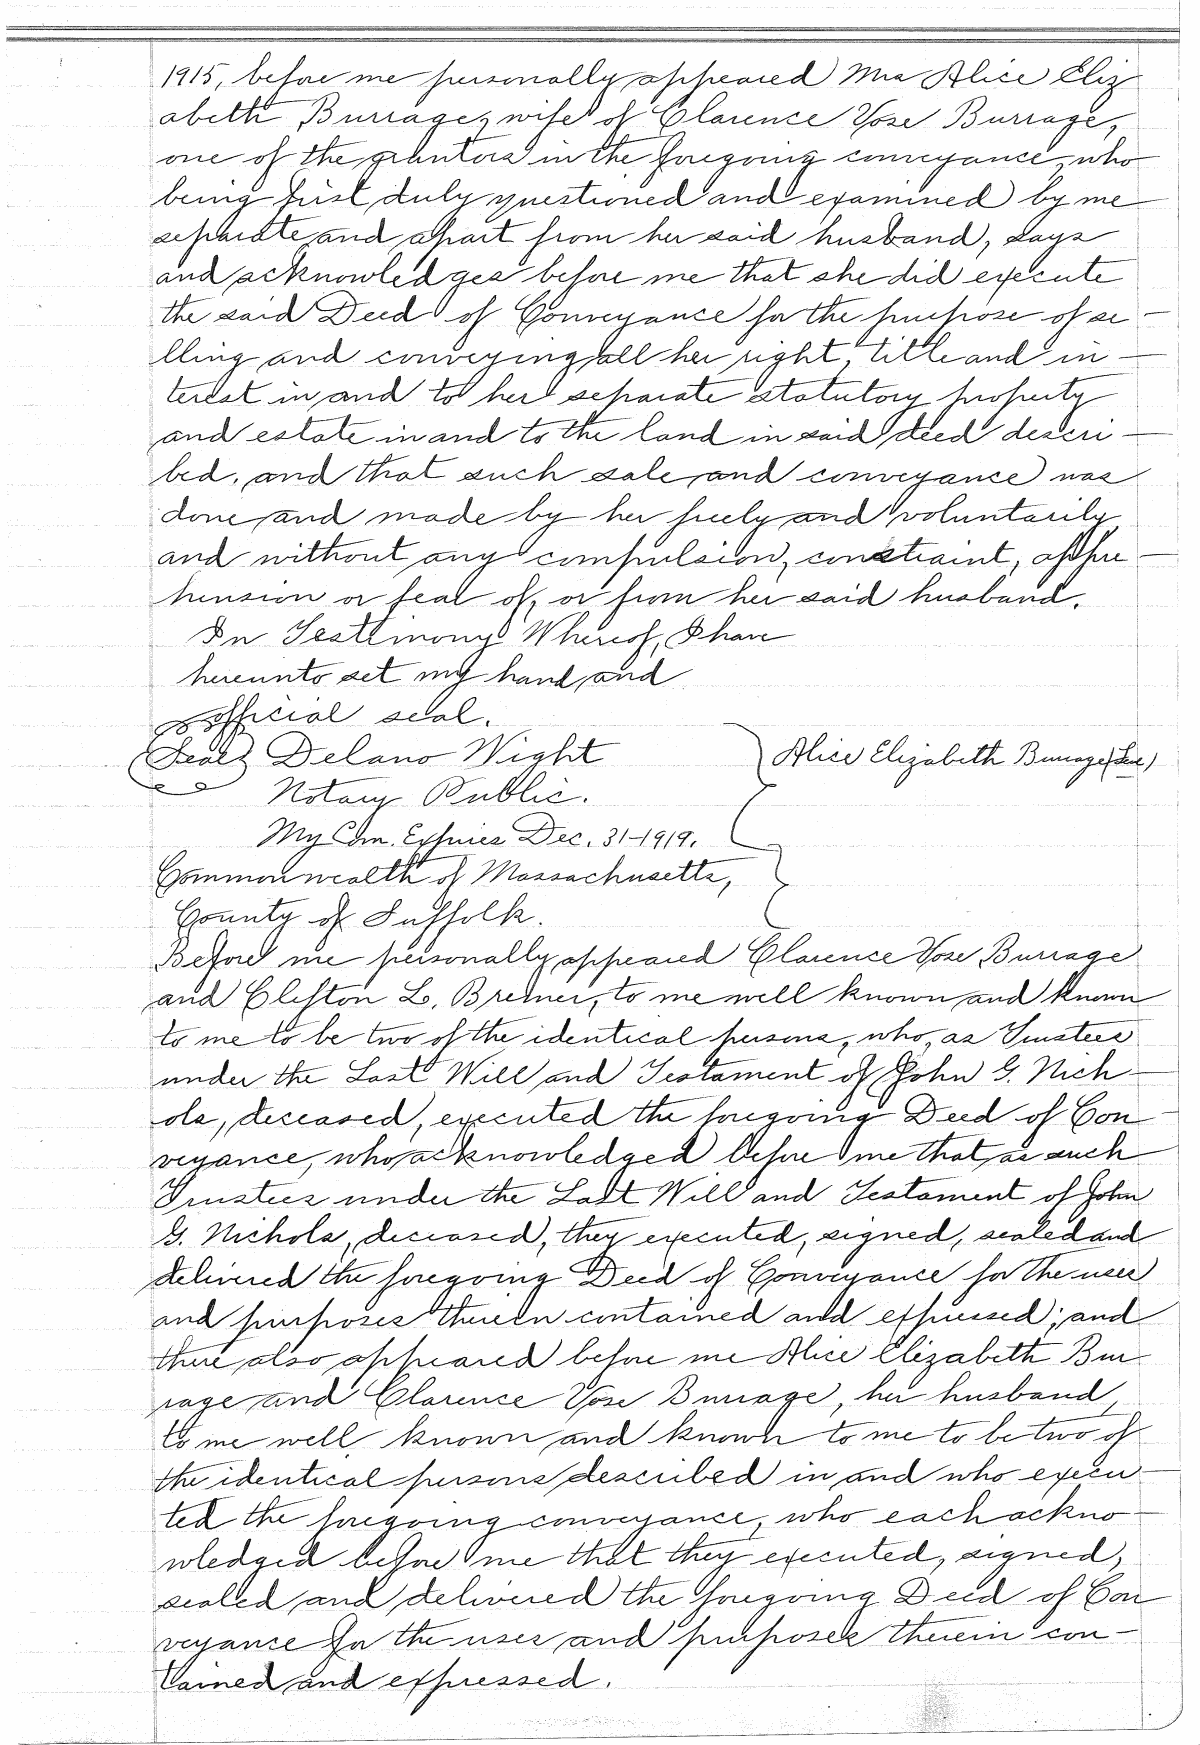 1915, before me personally appeared Mrs Alice Eliz
abeth Burrage, wife of Clarence Vose Burrage,
one of the grantors in the foregoing conveyance, who
being first duly questioned and examined by me
separate and apart from her said husband, says
and acknowledges before me that she did execute
the said Deed of Conveyance for the purpose of se-
lling and conveying all her right, title and in-
terest in and to her separate statutory property
and estate in and to the land in said deed descri-
bed, and that such sale and conveyance was
done and made by her freely and voluntarily
and without any compulsion, constraint, appre-
hension or fear of, or from her said husband.
In Testimony Whereof, I have
hereunto set my hand and
official seal.
(Seal) Delano Wight
Alice Elizabeth Burrage (Seal)
Notary Public.
My Com. Expires Dec. 31-1919.
Commonwealth of Massachusetts,
County of Suffolk.
Before me personally appeared Clarence Vose Burrage
and Clifton L. Bremer, to me well known and known
to me to be two of the identical persons, who, as Trustees
under the Last Will and Testament of John G. Nich-
ols, deceased, executed the foregoing Deed of Con-
veyance, who acknowledged before me that, as such
Trustees under the Last Will and Testament of John
G. Nichols, deceased, they executed, signed, sealed and
delivered the foregoing Deed of Conveyance for the uses
and purposes therein contained and expressed; and
there also appeared before me Alice Elizabeth Bur-
rage and Clarence Vose Burrage, her husband,
to me well known and known to me to be two of
the identical persons described in and who execu-
ted the foregoing conveyance, who each ackno-
wledged before me that they executed, signed,
sealed and delivered the foregoing Deed of Con-
veyance for the uses and purposes therein con-
tained and expressed.